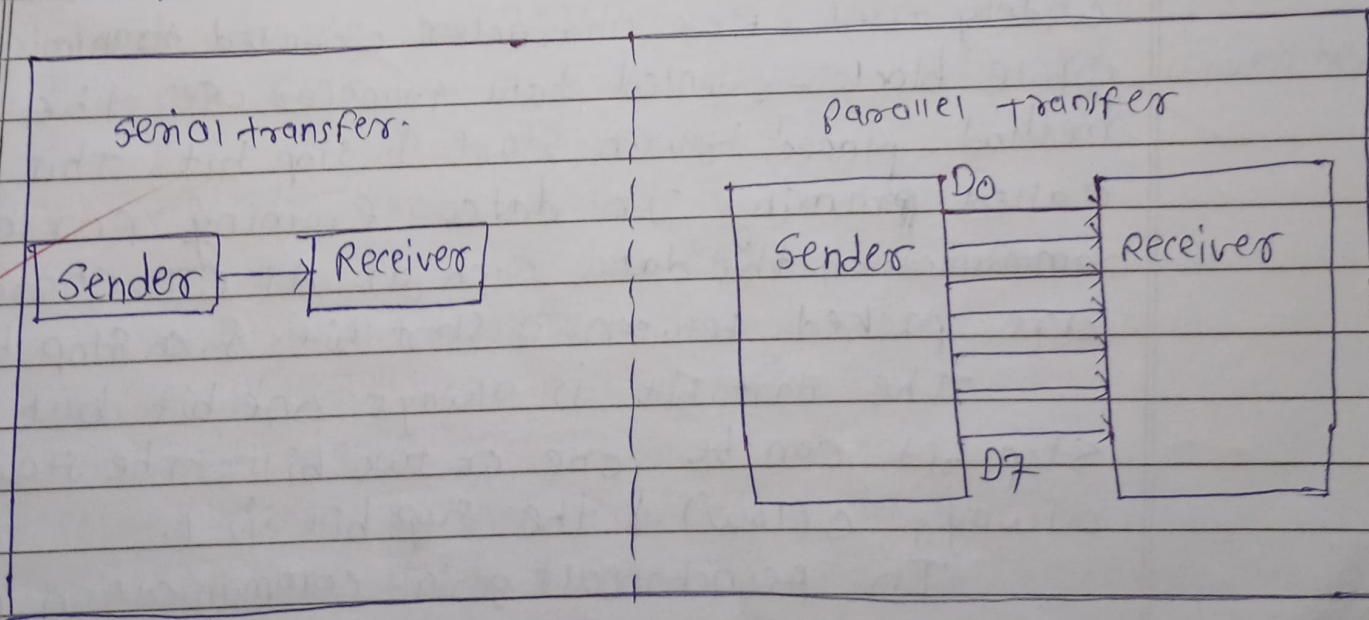 Serial transfer.
Sender
Receiver
Parallel transfer
D0
Sender
Receiver
D7